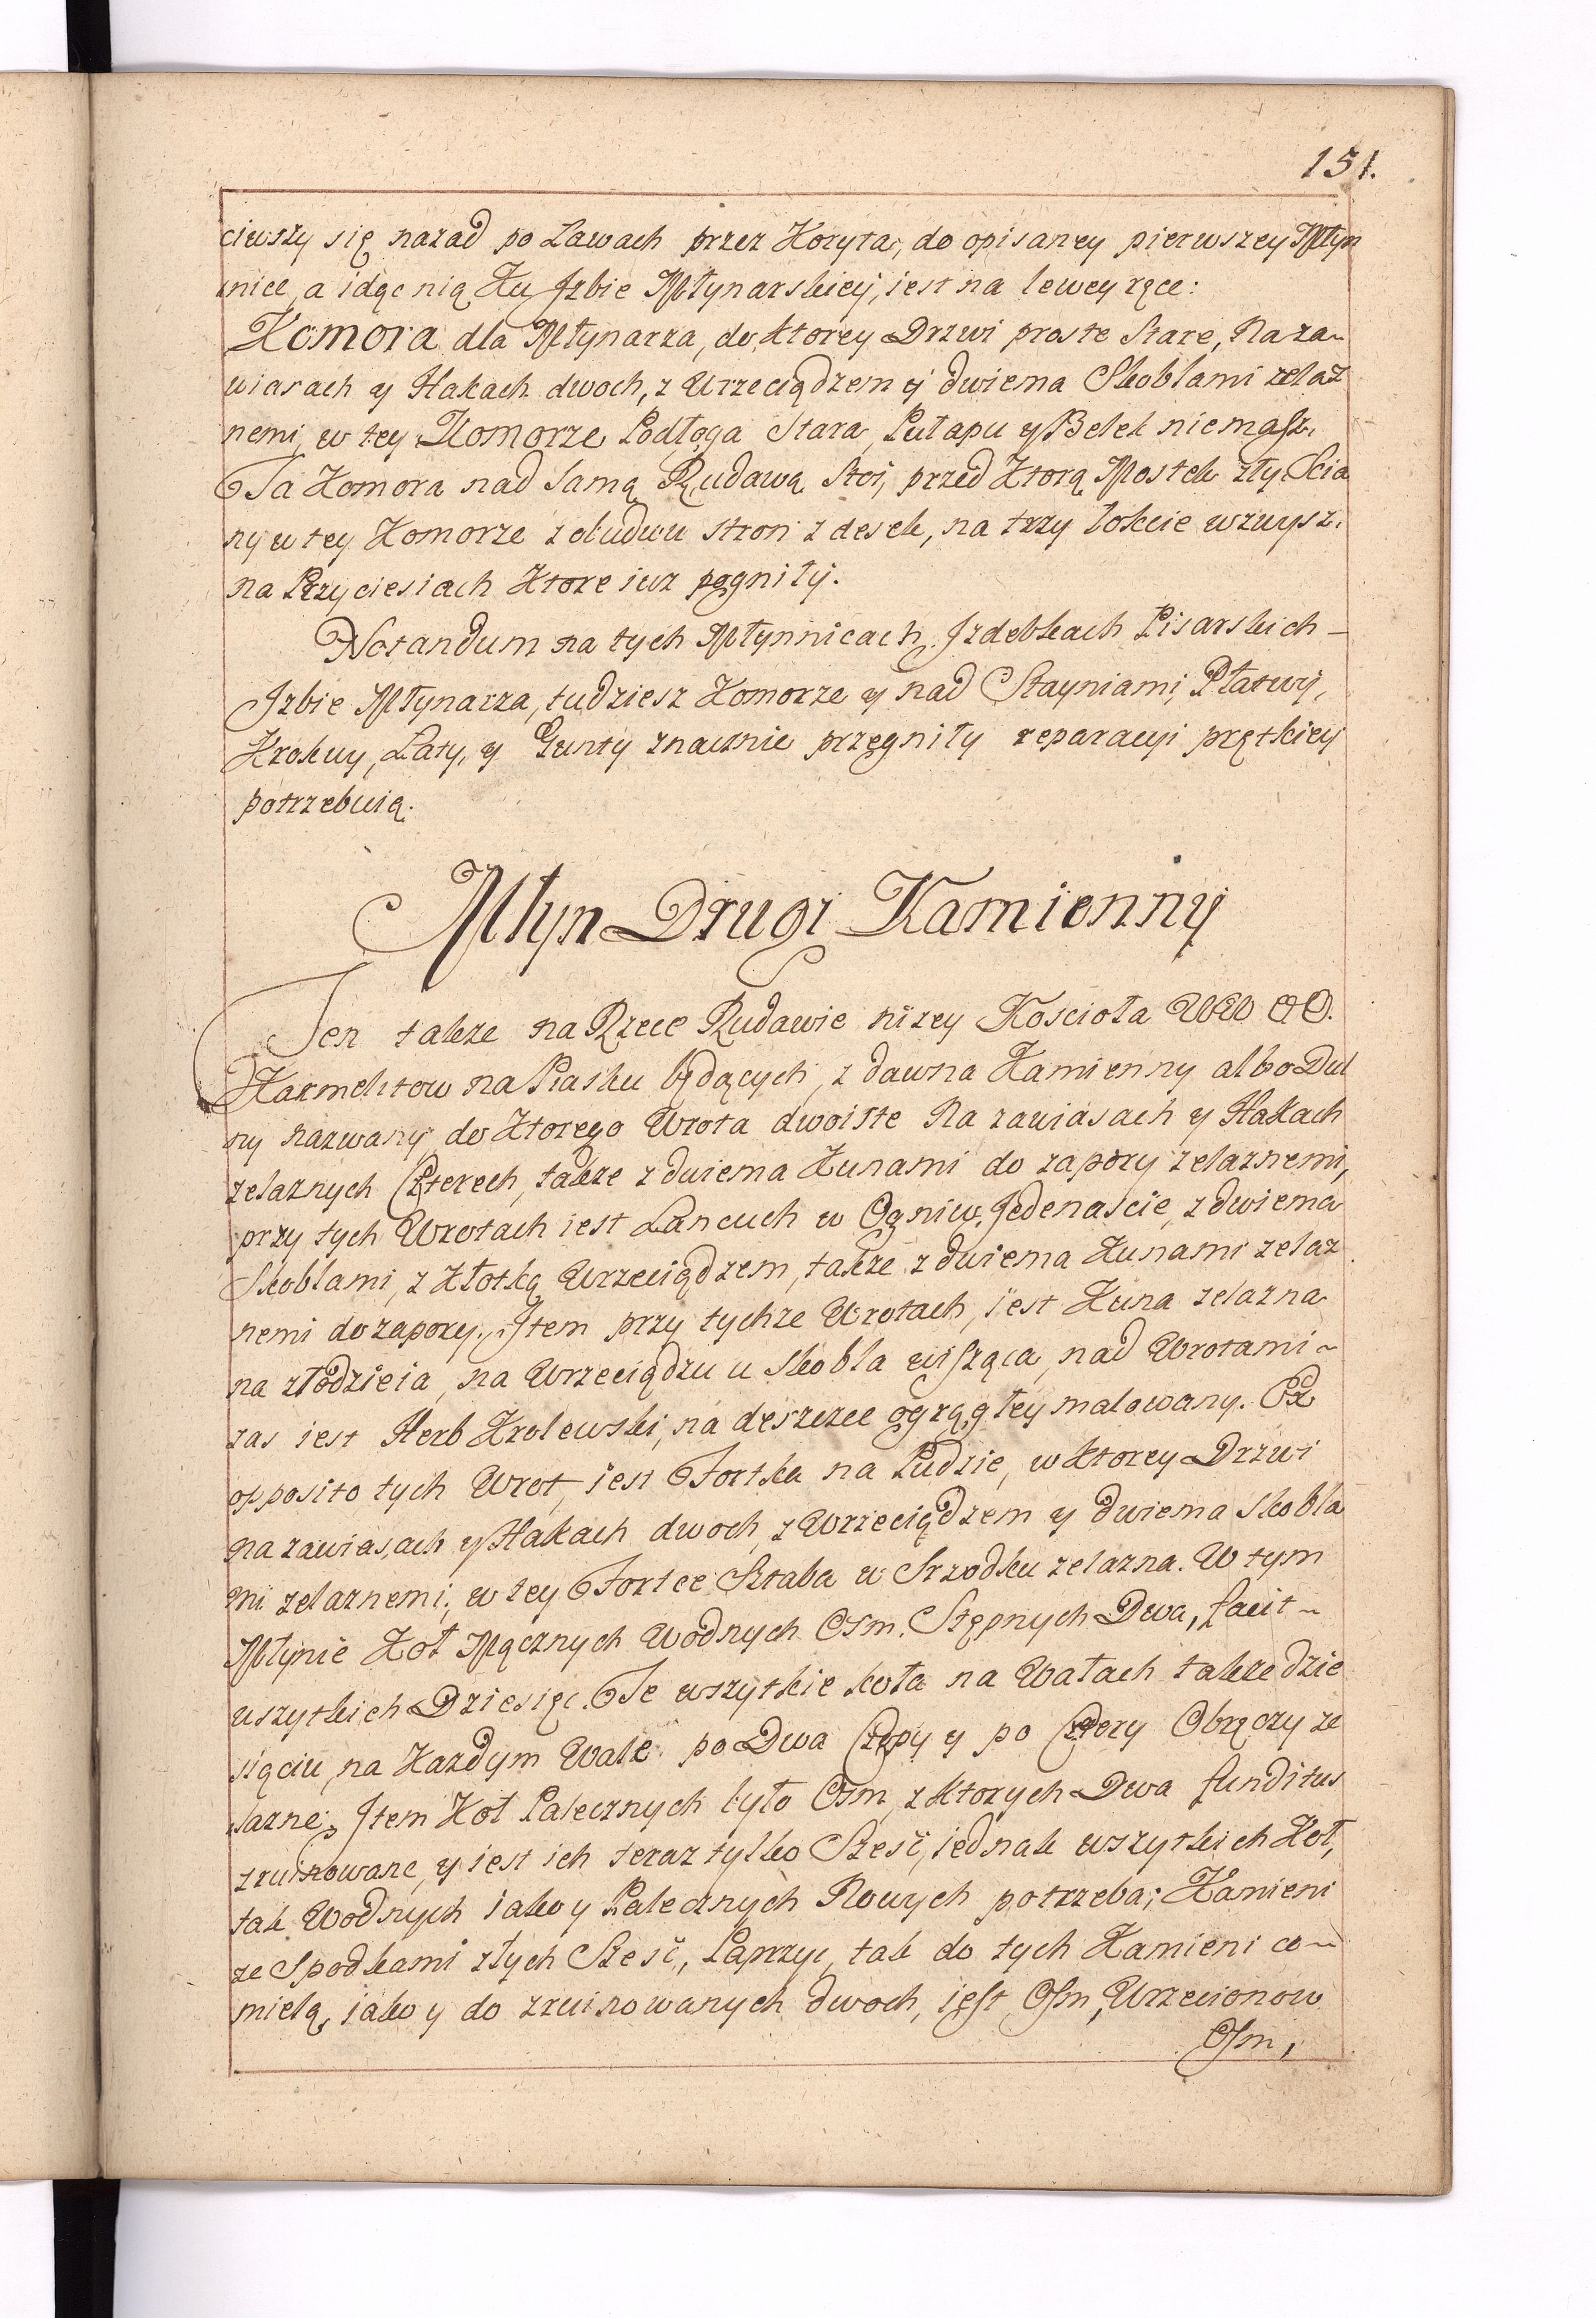 151.
ciwszy się nazad po Lawach przez Koryta, do opisaney pierwszey Młyn
nice, a idąc nią Ku Jzbie Młynarskiey, iest na lewey ręce:
Komora dla Młynarza, do ktorey Drzwi proste Stare, Na za~
wiasach y Hakach dwoch, z Wrzeciądzem y dwiema Skoblami zelaz
nemi, w tey Komorze Podłoga Stara, Pułapu y Belek niemasz.
Ta Komora nad samą Rudawą Stoi, przed Ktorą Mostek zły Scia
ny w tey Komorze z obudwu stron z desek, na trzy łokcie wzwysz.
na Przyciesiach Ktore iuz pogniły.
Notandum na tych Młynnicach, Jzdebkach Pisarskich –
Jzbie Młynarza, tudziesz Komorze y nad Stayniami, Płatwy,
Krokwy, Laty, y Gunty znacznie przegniły reparacyi prętkiey
potrzebuią.
Młyn Drugi Kamienny
Ten takze na Rzece Rudawie nizey Kościoła WW OO.
Karmelitow na Piasku będących, z dawna Kamienny albo Dul
ny nazwany, do Ktorego Wrota dwoiste Na zawiasach y Hakach
zelaznych Czterech, takze z dwiema Kunami do zapory zelaznemi,
przy tych Wrotach iest Lancuch w Ogniw Jedenascie, z dwiema
Skoblami, z Kłotką Wrzeciądzem, takze z dwiema Kunami zelaz
nemi do zapory. Jtem przy tychze Wrotach, iest Kuna zelazna
na złodzieia, na Wrzeciądzu u Skobla wisząca, nad Wrotami ~
zas iest Herb Krolewski, na deszczce ogrągłey malowany. Ex
opposito tych Wrot, iest Fortka na Ludzie, w Ktorey Drzwi
na zawiasach y Hakach dwoch, z Wrzeciądzem y dwiema skobla
mi zelaznemi, w tey Fortce Sztaba w Srzodku zelazna. W tym
Młynie Koł Mącznych Wodnych Osm. Stępnych Dwa, facit ~
wszytkich Dziesięc. Te wszytkie koła na Wałach takze dzie
sięciu, na Kazdym Wale po Dwa Czopy y po Cztery Obręczy ze
lazne, Jtem Koł Palecznych było Osm, z ktorych Dwa funditus
zruinowane, y iest ich teraz tylko Szesć, iednak wszytkich Koł,
tak Wodnych iako y Palecznych Nowych potrzeba; Kamieni
ze Spodkami złych Szesć, Paprzyc, tak do tych Kamieni co ~
mielą, iako y do zruinowanych dwoch, iest Osm, Wrzecionow
Osm,